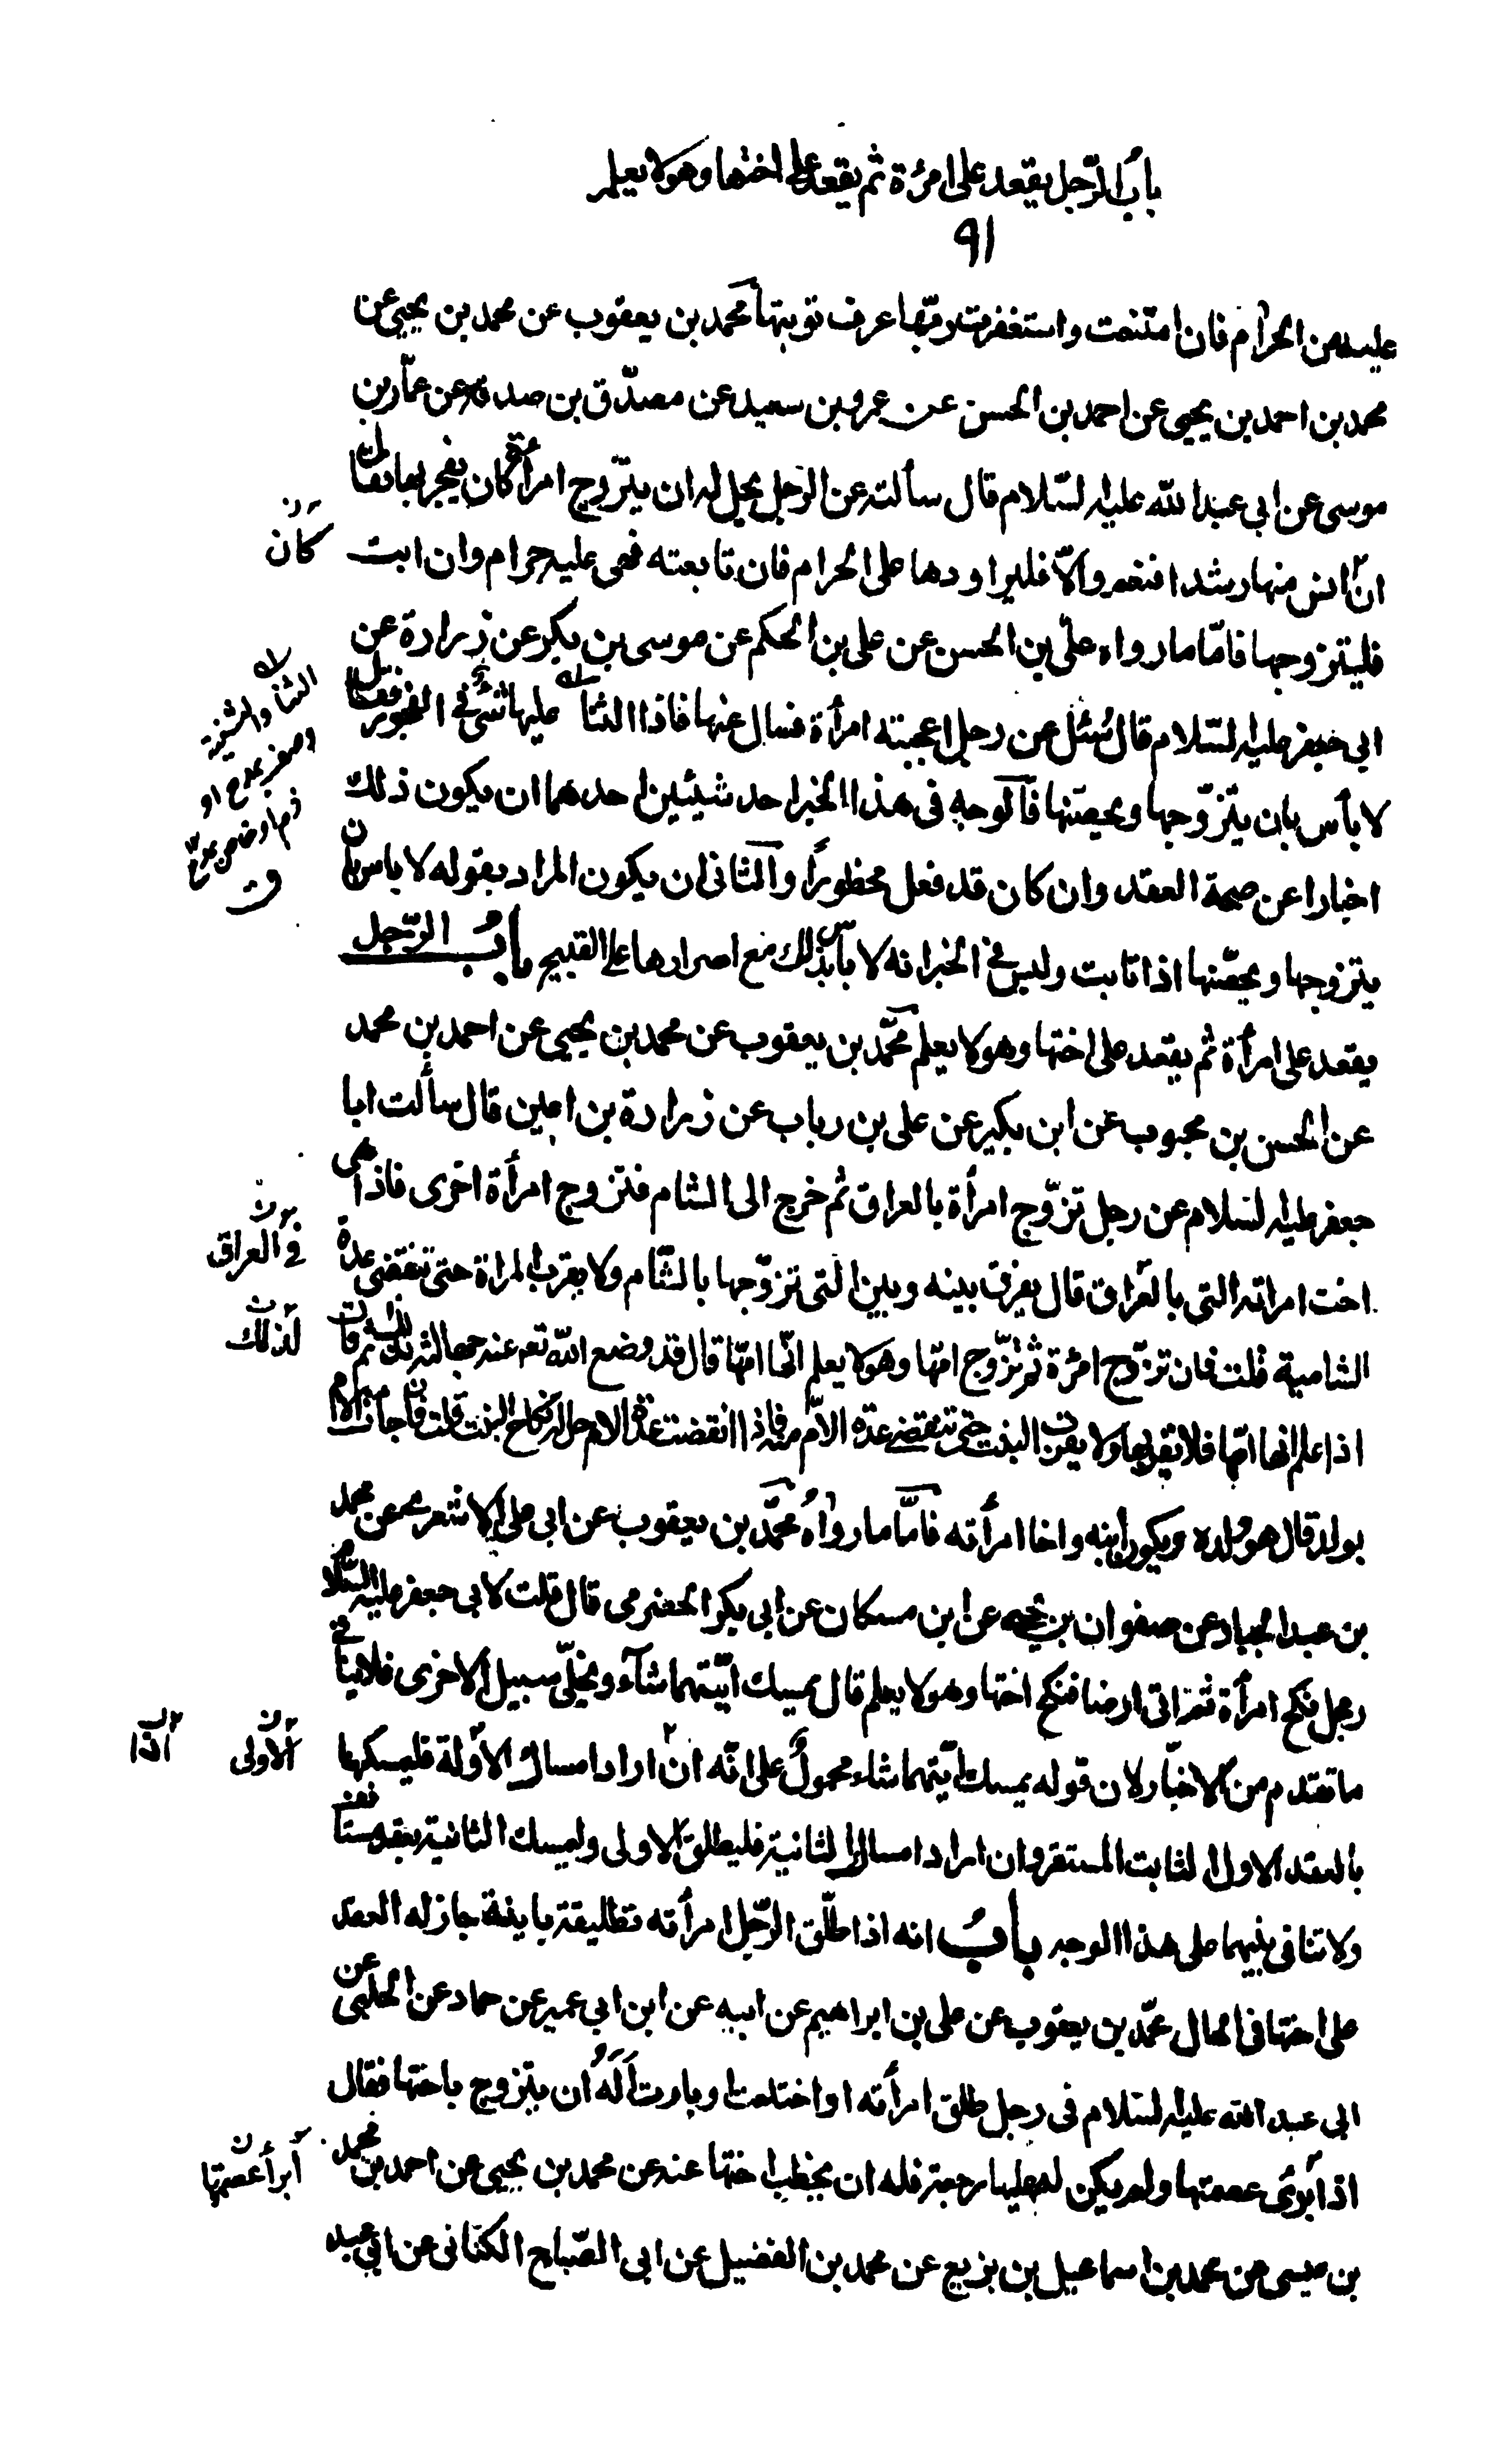 باب الرّجل يقعد على امرئة ثم يقعد على اختها وهو لا يعلم
٩١
عليه من الحرام فان امتنعت واستغفرت ربّها عرف توبتها محمد بن يعقوب عن محمد بن يحيى عن
محمد بن احمد بن يحيى عن احمد بن الحسن عن عمرو بن سعيد عن مصدّق بن صدقة عن عمّار بن
موسى عن ابي عبد الله عليه السّلام قال سألته عن الرجل يحل له ان يتزوج امرأة كان يفجر بها فقال
ان انس منها رشدا فنعم والّا فليراودها على الحرام فان تابعته فهى عليه حرام وان ابت
كان ن
فليتزوجها فامّا ما رواه علىّ بن الحسن عن على بن الحكم عن موسى بن بكر عن زرارة عن
ابي جعفر عليه السّلام قال سُئل عن رجل اعجبته امرأة فسال عنها فاذا الثنا عليها شئ في الفجور فقال
الثنا والتثنية
وصف بمدح او
ذم او خاص بالمدح
ق
لا بأس بان يتزوّجها ويحصنها فالوجه فى هذا الخبر احد شيئين احدهما ان يكون ذلك
اخبارا عن صحة العقد وان كان قد فعل محظوراً والثانى ان يكون المراد بقوله لا باس بان
يتزوجها ويحصّنها اذا تابت وليس في الخبر انه لا بأس بذلك مع اصرارها على القبيح باب الرّجل
يقعد على امرأة ثم يقعد على اختها وهو لا يعلم محمّد بن يعقوب عن محمد بن يحيى عن احمد بن محمد
عن الحسن بن محبوب عن ابن بكير عن على بن رياب عن زرارة بن اعين قال سألت ابا
جعفر عليه السلام عن رجل تزوّج امرأة بالعراق ثم خرج الى الشام فتزوج امرأة اخرى فاذا هى
اخت امراته التى بالعراق قال يفرق بينه وبين التى تزوّجها بالشّام ولا يقرب المراة حتى تنقضى عدة
في العراق
الشامية قلت فان تزوّج امرئة ثم تزوّج امّها وهو لا يعلم انّها امّها قال قد وضع الله تعم عنه جهالته بذلك ثم قال
لذلك
اذا علم انها امّها فلا يقربها ولا يقرب البنت حتى تنقضي عدة الامّ منه فاذا انقضت عدة الام حل له نكاح البنت قلت فان جائت الام
بولد قال هو ولده ويكون ابنه واخا امرأته فامّا ما رواه محمّد بن يعقوب عن ابى على الاشعرى عن محمد
بن عبد الجبار عن صفوان بن يحيى عن ابن مسكان عن ابى بكر الحضرمى قال قلت لابى جعفر عليه السّلام
رجل نكح امرأة ثم اتى ارضا فنكح اختها وهو لا يعلم قال يمسك ايّتهما شآء ويخلّى سبيل الاخرى فلا ينافي
ما تقدم من الاخبار لان قوله يمسك ايّتهما شاء محمولٌ على انّه ان اراد امساك الأولة فليمسكها
الاولى ن
اذا
بالعقد الاول الثابت المستقر وان اراد امساك الثانية فليطلق الاولى وليمسك الثانية بعقد مستانف
ولا تنافى بينهما على هذا الوجه بابُ انه اذا طلّق الرّجل امرأته تطليقة باينة جاز له العقد
على اختها فى الحال محمّد بن يعقوب عن على بن ابراهيم عن ابيه عن ابن ابي عمير عن حماد عن الحلبى عن
ابى عبد الله عليه السّلام فى رجل طلق امرأته او اختلعت او بارت أله ان يتزوج باختها فقال
اذا أبرئ عصمتها ولم يكن له عليها رجعة فله ان يخطب اختها عنه عن محمد بن يحيى عن احمد بن محمد
أبرأ عصمتها ن
بن عيسى عن محمد بن اسماعيل بن بزيع عن محمد بن الفضيل عن ابى الصّباح الكنانى عن ابي عبد